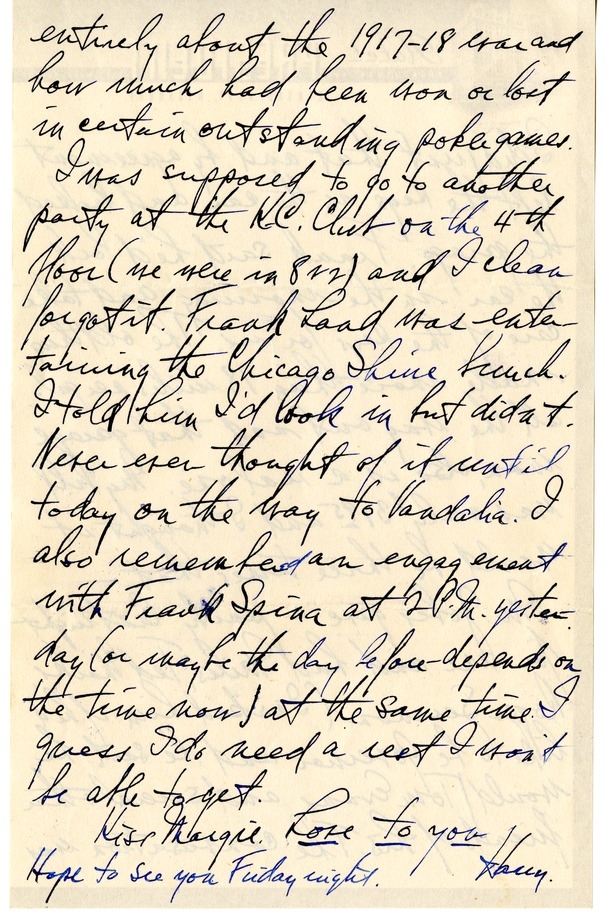 entirely about the 1917-18 war and
how much had been won or lost
in certain outstanding poker games.
I was supposed to go to another
party at the K.C. Club on the 4th
floor (we were in 822) and I clean
forgot it. Frank Land was enter-
taining the Chicago Shine bunch.
I told him I'd look in but didn't.
Never even thought of it until
today on the way to Vandalia. I
also remembered an engagement
with Frank Spina at 2 P.M. yester-
day (or maybe the day before-depends on
the time now) at the same time. I
guess I do need a rest I won't
be able to get.
Kiss Margie. Love to you
Hope to see you Friday night. Harry.